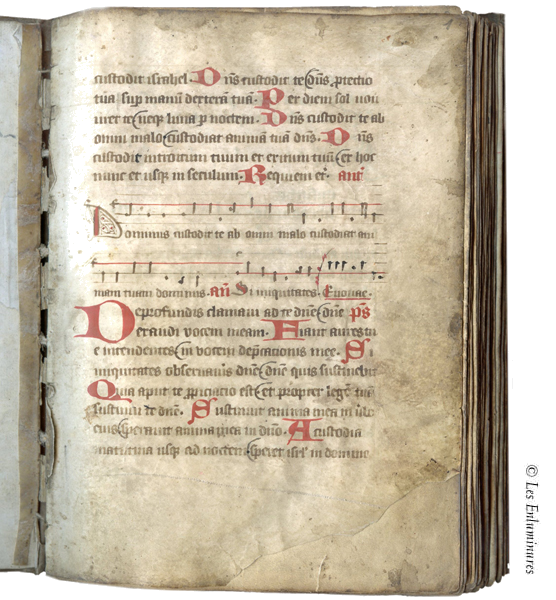 custodit israhel. Dn̄s custodit te dn̄s ꝓtectio
tua suꝑ manū dexterā tuā. Per diem sol non
uret te neqꝫ luna ꝑ noctem. Dn̄s custodit te ab
omni malo custodiat animā tuā dn̄s. Dn̄s
custodit introitum tuum et exitum tuū ex hoc
nunc et usqꝫ in seculum. Requiem et̄. an̄
Dominus custodit te ab omni malo custodiat ani
mam tuam dominus. an̄ Si iniquitates. Euouae.
De profundis clamaui ad te dn̄e dn̄e p̄s
exaudi vocem meam. Fiant aures tu
e intendentes in vocem dep̄cationis mee. Si
iniquitates obseruaueris dn̄e dn̄e quis sustinebit
Quia aput te ꝓpiciacio est et propter legē tuā
sustinui te dn̄e. Sustinuit anima mea in
eius sperauit anima mea in dn̄o. A custodia
matutina usqꝫ ad noctem speret isrl̄ in domino
© Les Enluminures